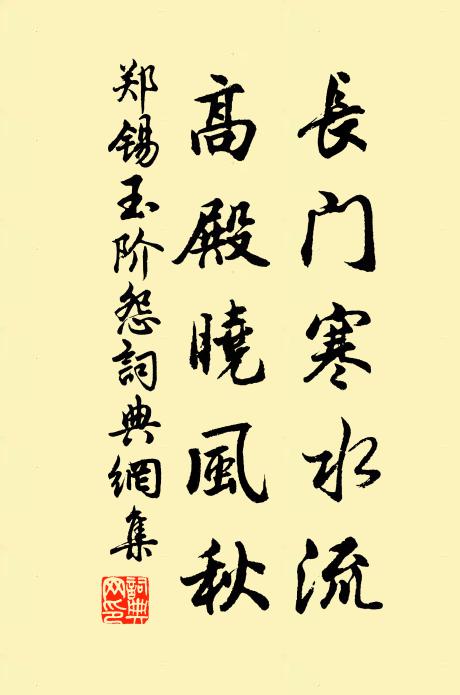 長门寒水流
髙殿曉風秋
郑锡玉阶怨詞典網集
詞典网印